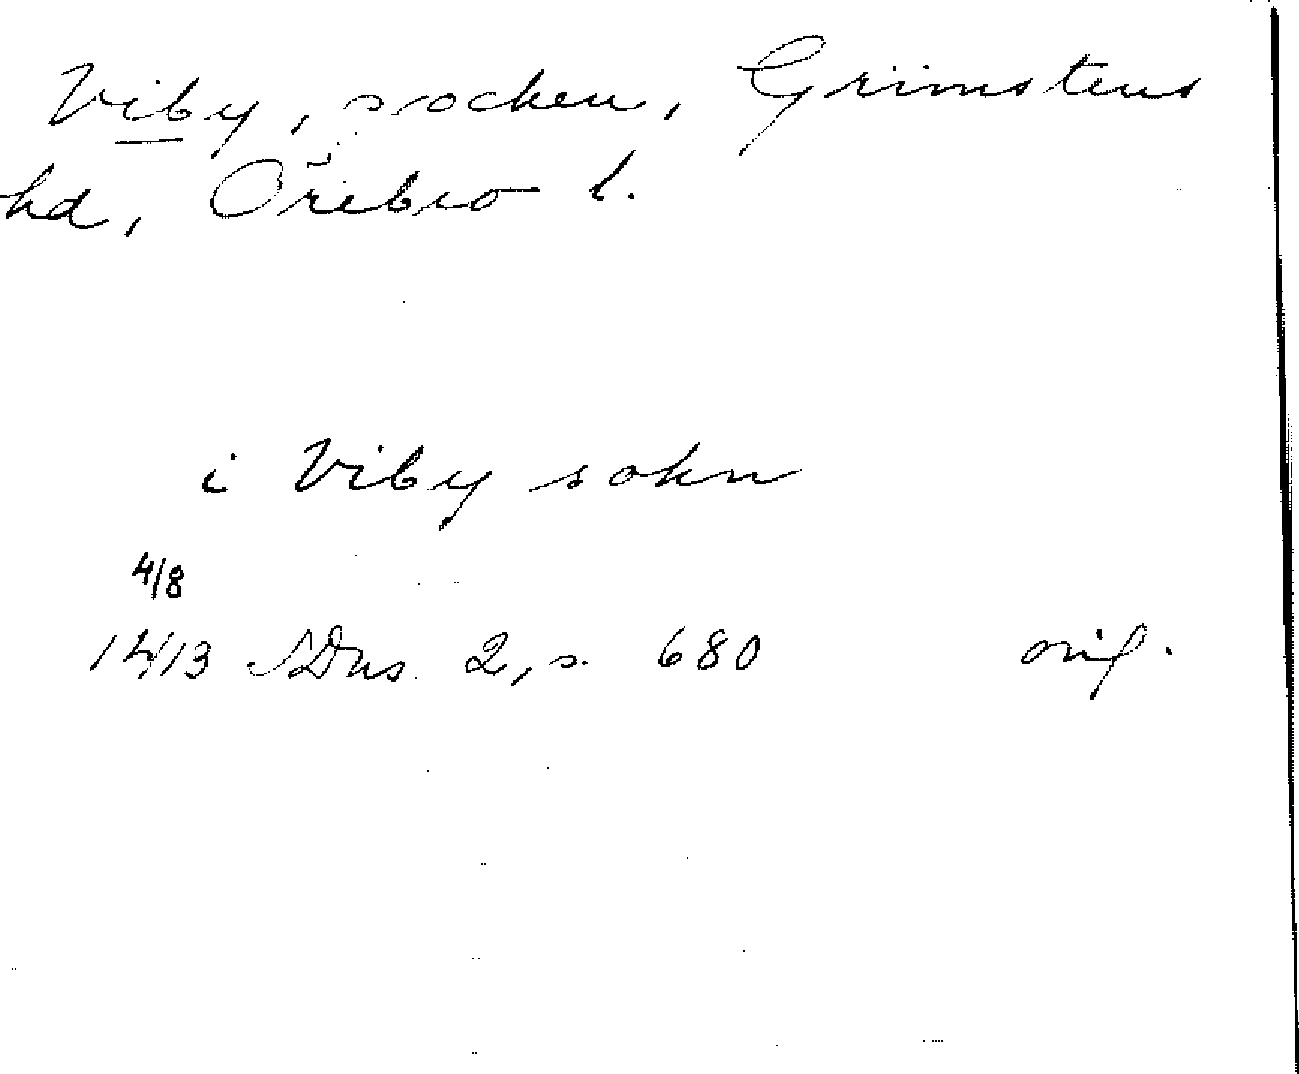 Viby, socken, Grimstens
hd, Örebro l.
i Viby sokn
4/8
1413 SDns 2, s. 680 orig.